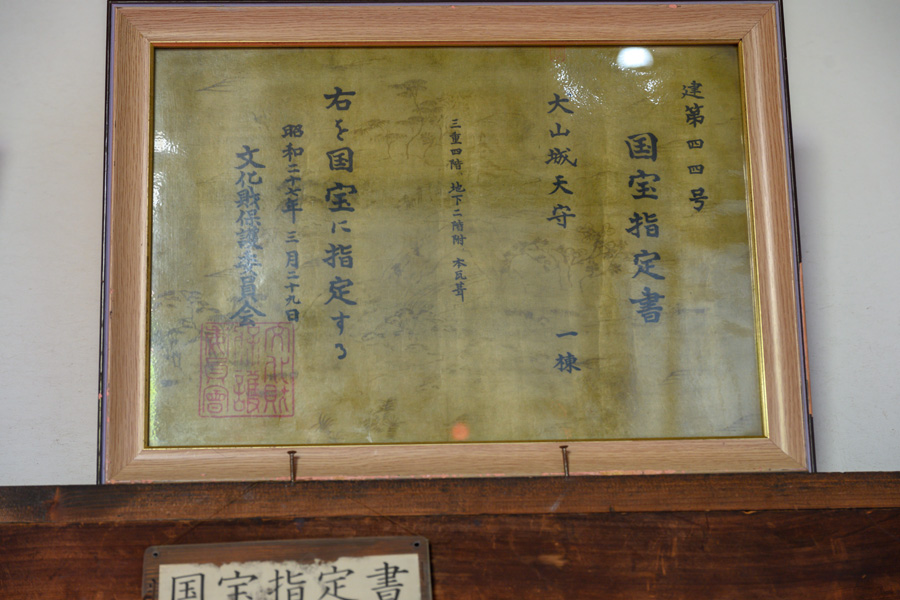 建第四四号
国宝指定書
犬山城天守 一棟
三重四階 地下二階附 本瓦葺
右を国宝に指定する
昭和二十七年 三月二十九日
文化財保護委員会
文化財
保護
委員會
国宝指定書